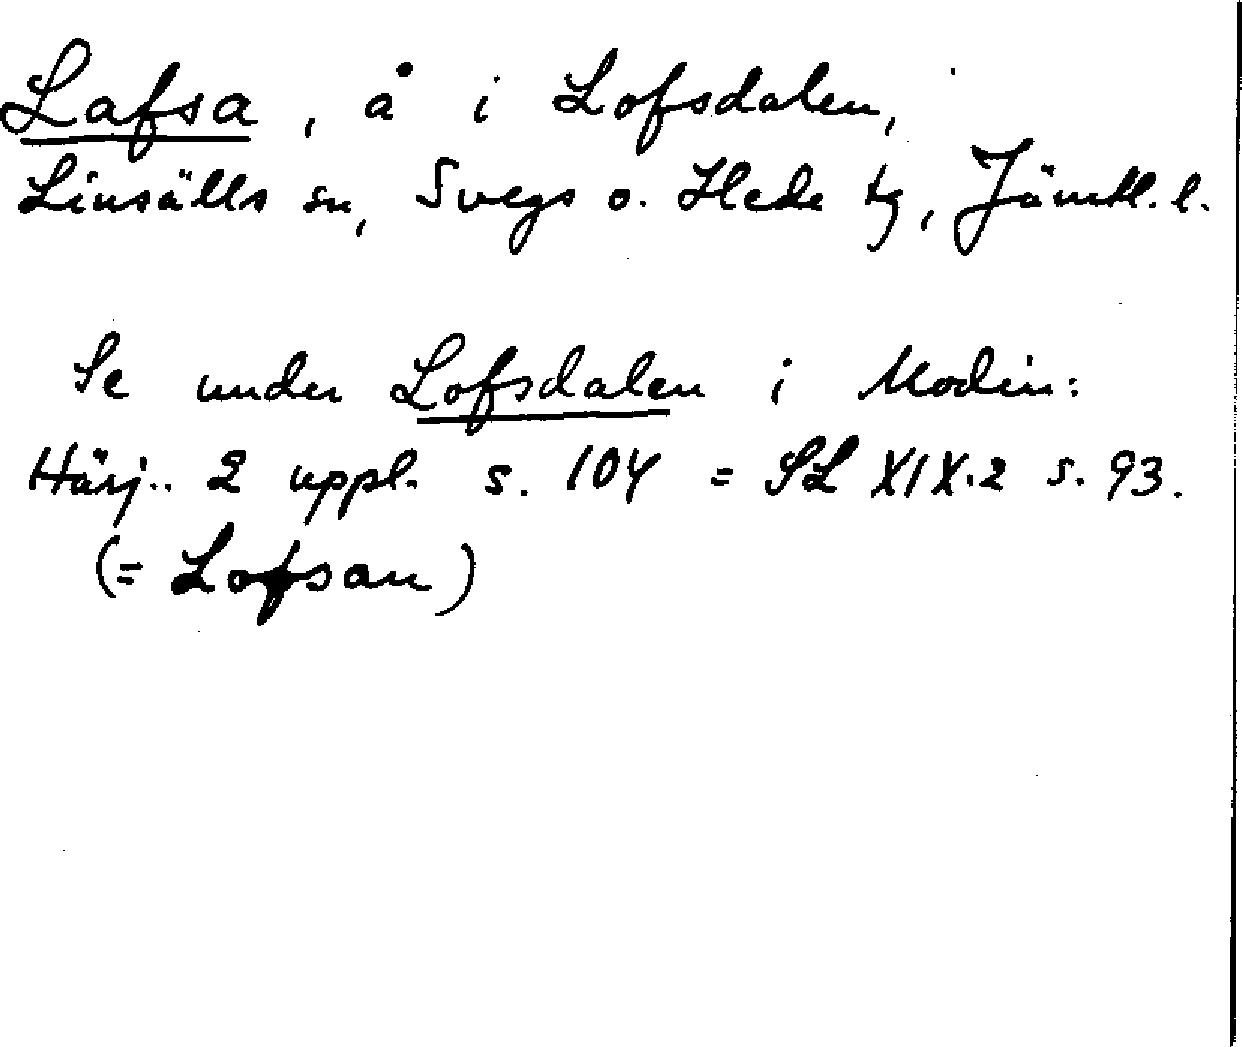 Lafsa, å i Lofsdalen,
Linsälls sn, Svegs o. Hede tg, Jämtl. l.
Se under Lofsdalen i Modin:
Härj.. 2 uppl. s. 104 = SL XIX.2 s. 93.
(= Lofsan)